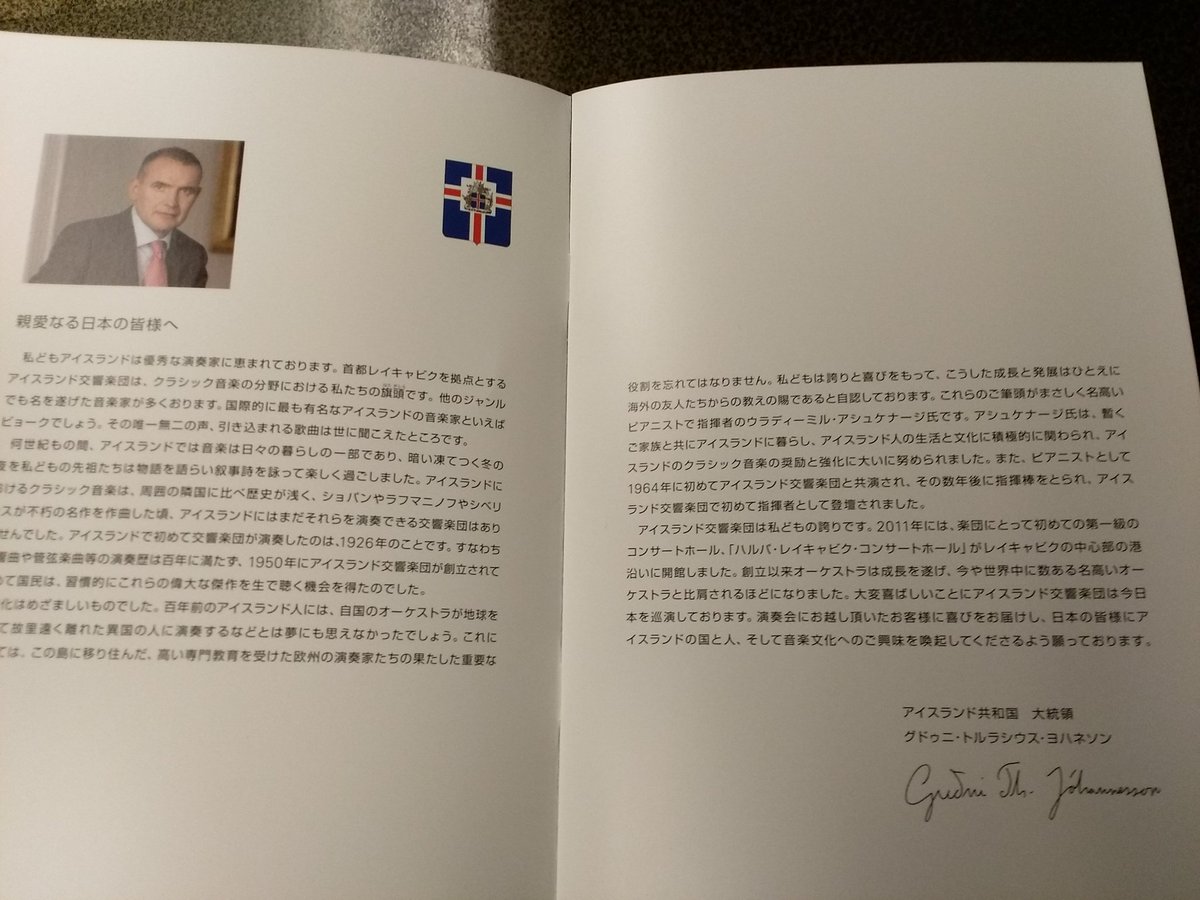 親愛なる日本の皆様へ
私どもアイスランドは優秀な演奏家に恵まれております。首都レイキャビクを拠点とする
アイスランド交響楽団は、クラシック音楽の分野における私たちの旗頭です。他のジャンル
でも名を遂げた音楽家が多くおります。国際的に最も有名なアイスランドの音楽家といえば
ビョークでしょう。その唯一無二の声、引き込まれる歌曲は世に聞こえたところです。
何世紀もの間、アイスランドでは音楽は日々の暮らしの一部であり、暗い凍てつく冬の
夜を私どもの先祖たちは物語を語らい叙事詩を詠って楽しく過ごしました。アイスランドに
おけるクラシック音楽は、周囲の隣国に比べ歴史が浅く、ショパンやラフマニノフやシベリ
スが不朽の名作を作曲した頃、アイスランドにはまだそれらを演奏できる交響楽団はあり
せんでした。アイスランドで初めて交響楽団が演奏したのは、1926年のことです。すなわち
響曲や管弦楽曲等の演奏歴は百年に満たず、1950年にアイスランド交響楽団が創立されて
めて国民は、習慣的にこれらの偉大な傑作を生で聴く機会を得たのでした。
化はめざましいものでした。百年前のアイスランド人には、自国のオーケストラが地球を
て故里遠く離れた異国の人に演奏するなどとは夢にも思えなかったでしょう。これに
ては、この島に移り住んだ、高い専門教育を受けた欧州の演奏家たちの果たした重要な
役割を忘れてはなりません。私どもは誇りと喜びをもって、こうした成長と発展はひとえに
海外の友人たちからの教えの賜であると自認しております。これらのご筆頭がまさしく名高い
ピアニストで指揮者のウラディーミル・アシュケナージ氏です。アシュケナージ氏は、暫く
ご家族と共にアイスランドに暮らし、アイスランド人の生活と文化に積極的に関わられ、アイ
スランドのクラシック音楽の奨励と強化に大いに努められました。また、ピアニストとして
1964年に初めてアイスランド交響楽団と共演され、その数年後に指揮棒をとられ、アイス
ランド交響楽団で初めて指揮者として登壇されました。
アイスランド交響楽団は私どもの誇りです。2011年には、楽団にとって初めての第一級の
コンサートホール、「ハルパ・レイキャビク・コンサートホール」がレイキャビクの中心部の港
沿いに開館しました。創立以来オーケストラは成長を遂げ、今や世界中に数ある名高いオー
ケストラと比肩されるほどになりました。大変喜ばしいことにアイスランド交響楽団は今日
本を巡演しております。演奏会にお越し頂いたお客様に喜びをお届けし、日本の皆様にア
イスランドの国と人、そして音楽文化へのご興味を喚起してくださるよう願っております。
アイスランド共和国　大統領
グドゥニ・トルラシウス・ヨハネソン
Guðni Th. Jóhannesson